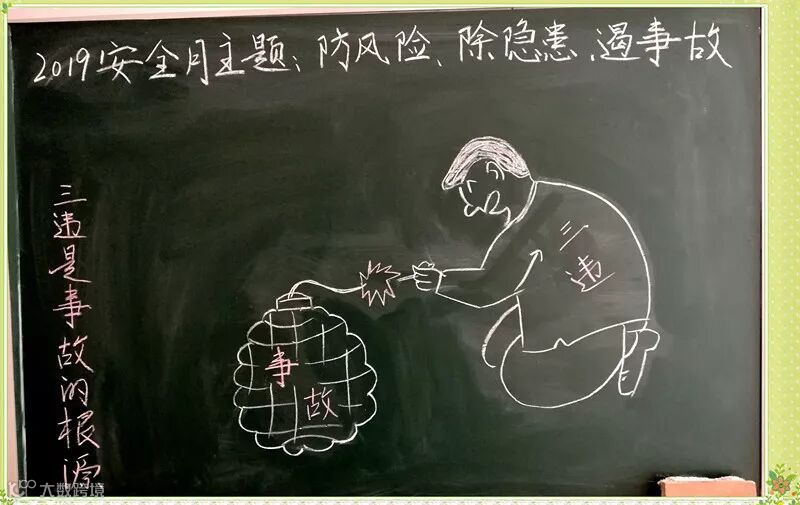 2019安全月主题:防风险、除隐患、遏事故
三违是事故的根源
三违
事故
大数跨境